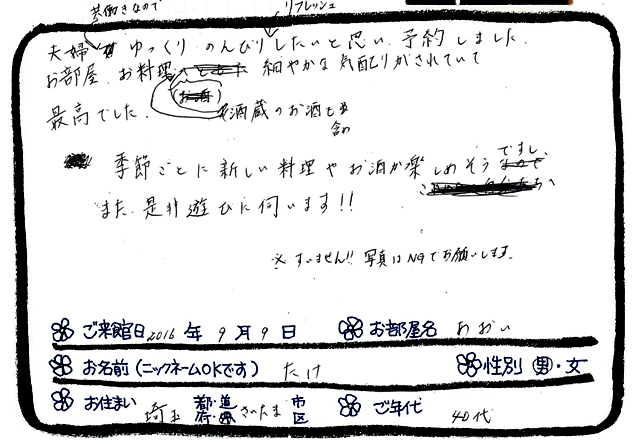 共働きなので
リフレッシュ
夫婦 ゆっくり のんびりしたいと思い、予約しました。
お部屋、お料理 細やかな気配りがされていて
(お酒)
最高でした。 酒蔵のお酒も
含め
季節ごとに新しい料理やお酒が楽しめそうですし、
また是非遊びに伺います!!
※すいません!! 写真はNGでお願いします。
ご来館日 2016年 9月 9日 お部屋名 あおい
お名前(ニックネームOKです) たけ 性別 男・女
お住まい 埼玉 都・道・府・県 さいたま 市区 ご年代 40代